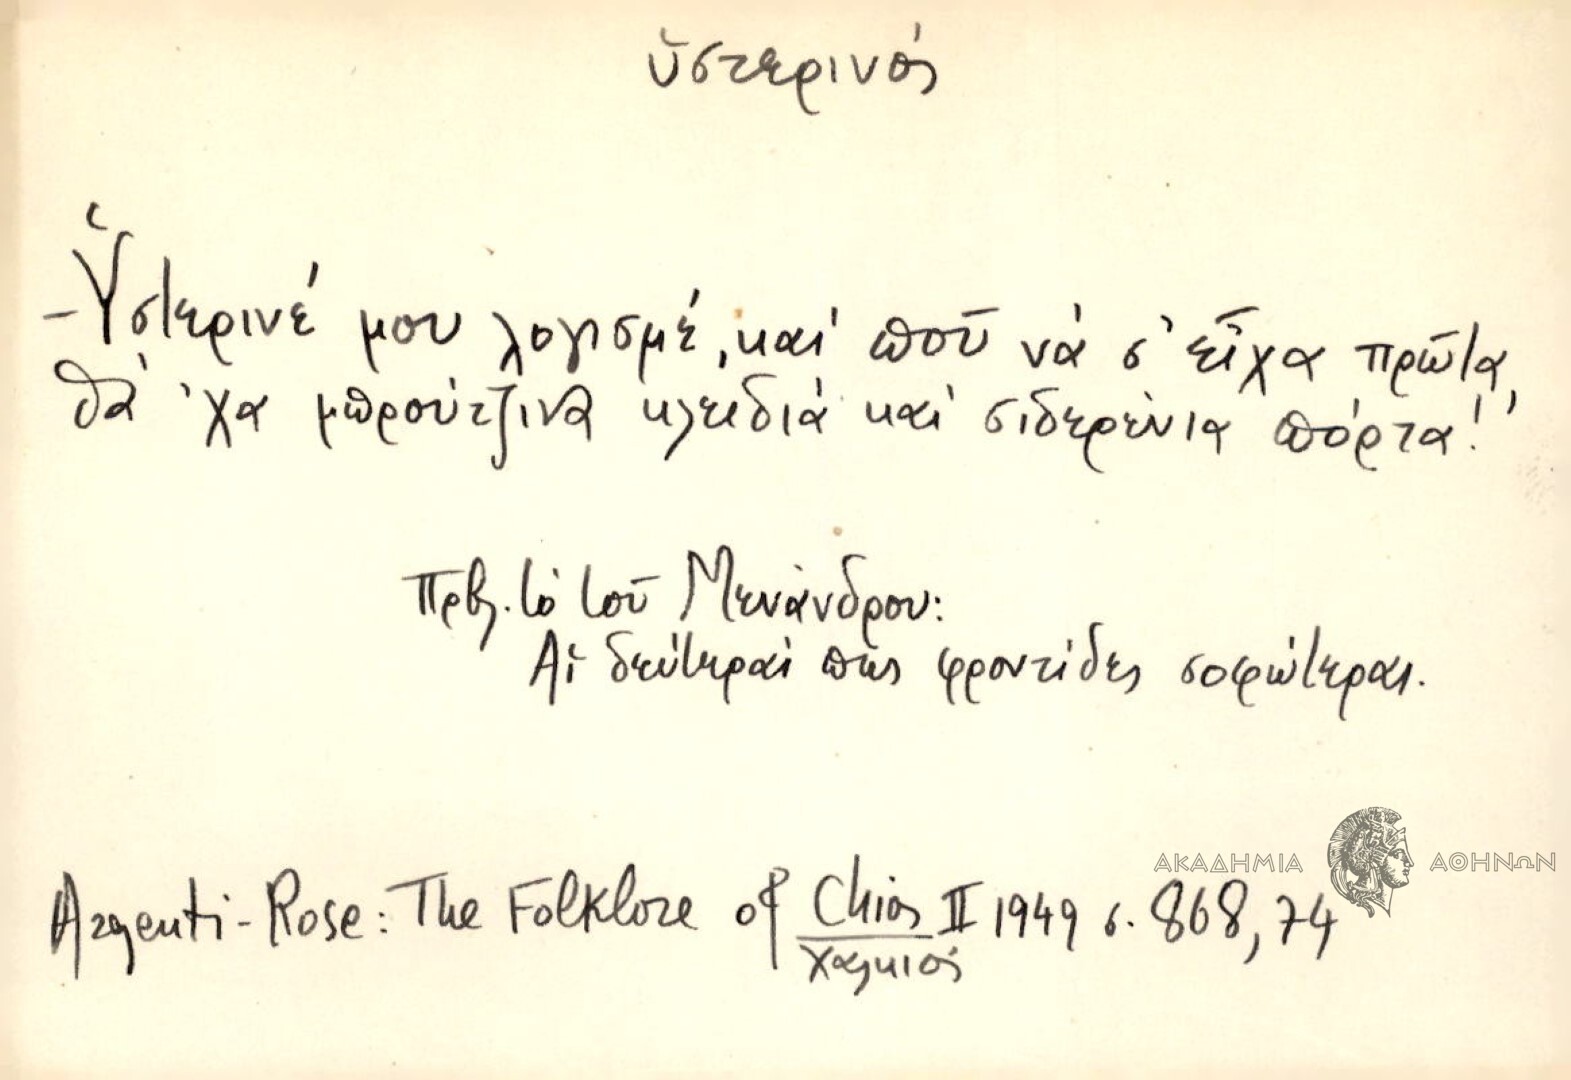 ὑστερινός
- Ὑστερινέ μου λογισμέ, καί ποῦ νά σ' εἶχα πρῶτα,
θά 'χα μπρούτζινα κλειδιά καί σιδερένια πόρτα!
Πρβλ. τό τοῦ Μενάνδρου:
Αἱ δεύτεραί πως φροντίδες σοφώτεραι.
ΑΚΑΔΗΜΙΑ ΑΘΗΝΩΝ
Argenti-Rose: The Folklore of Chios II 1949 σ. 868, 74
Χαλκιός